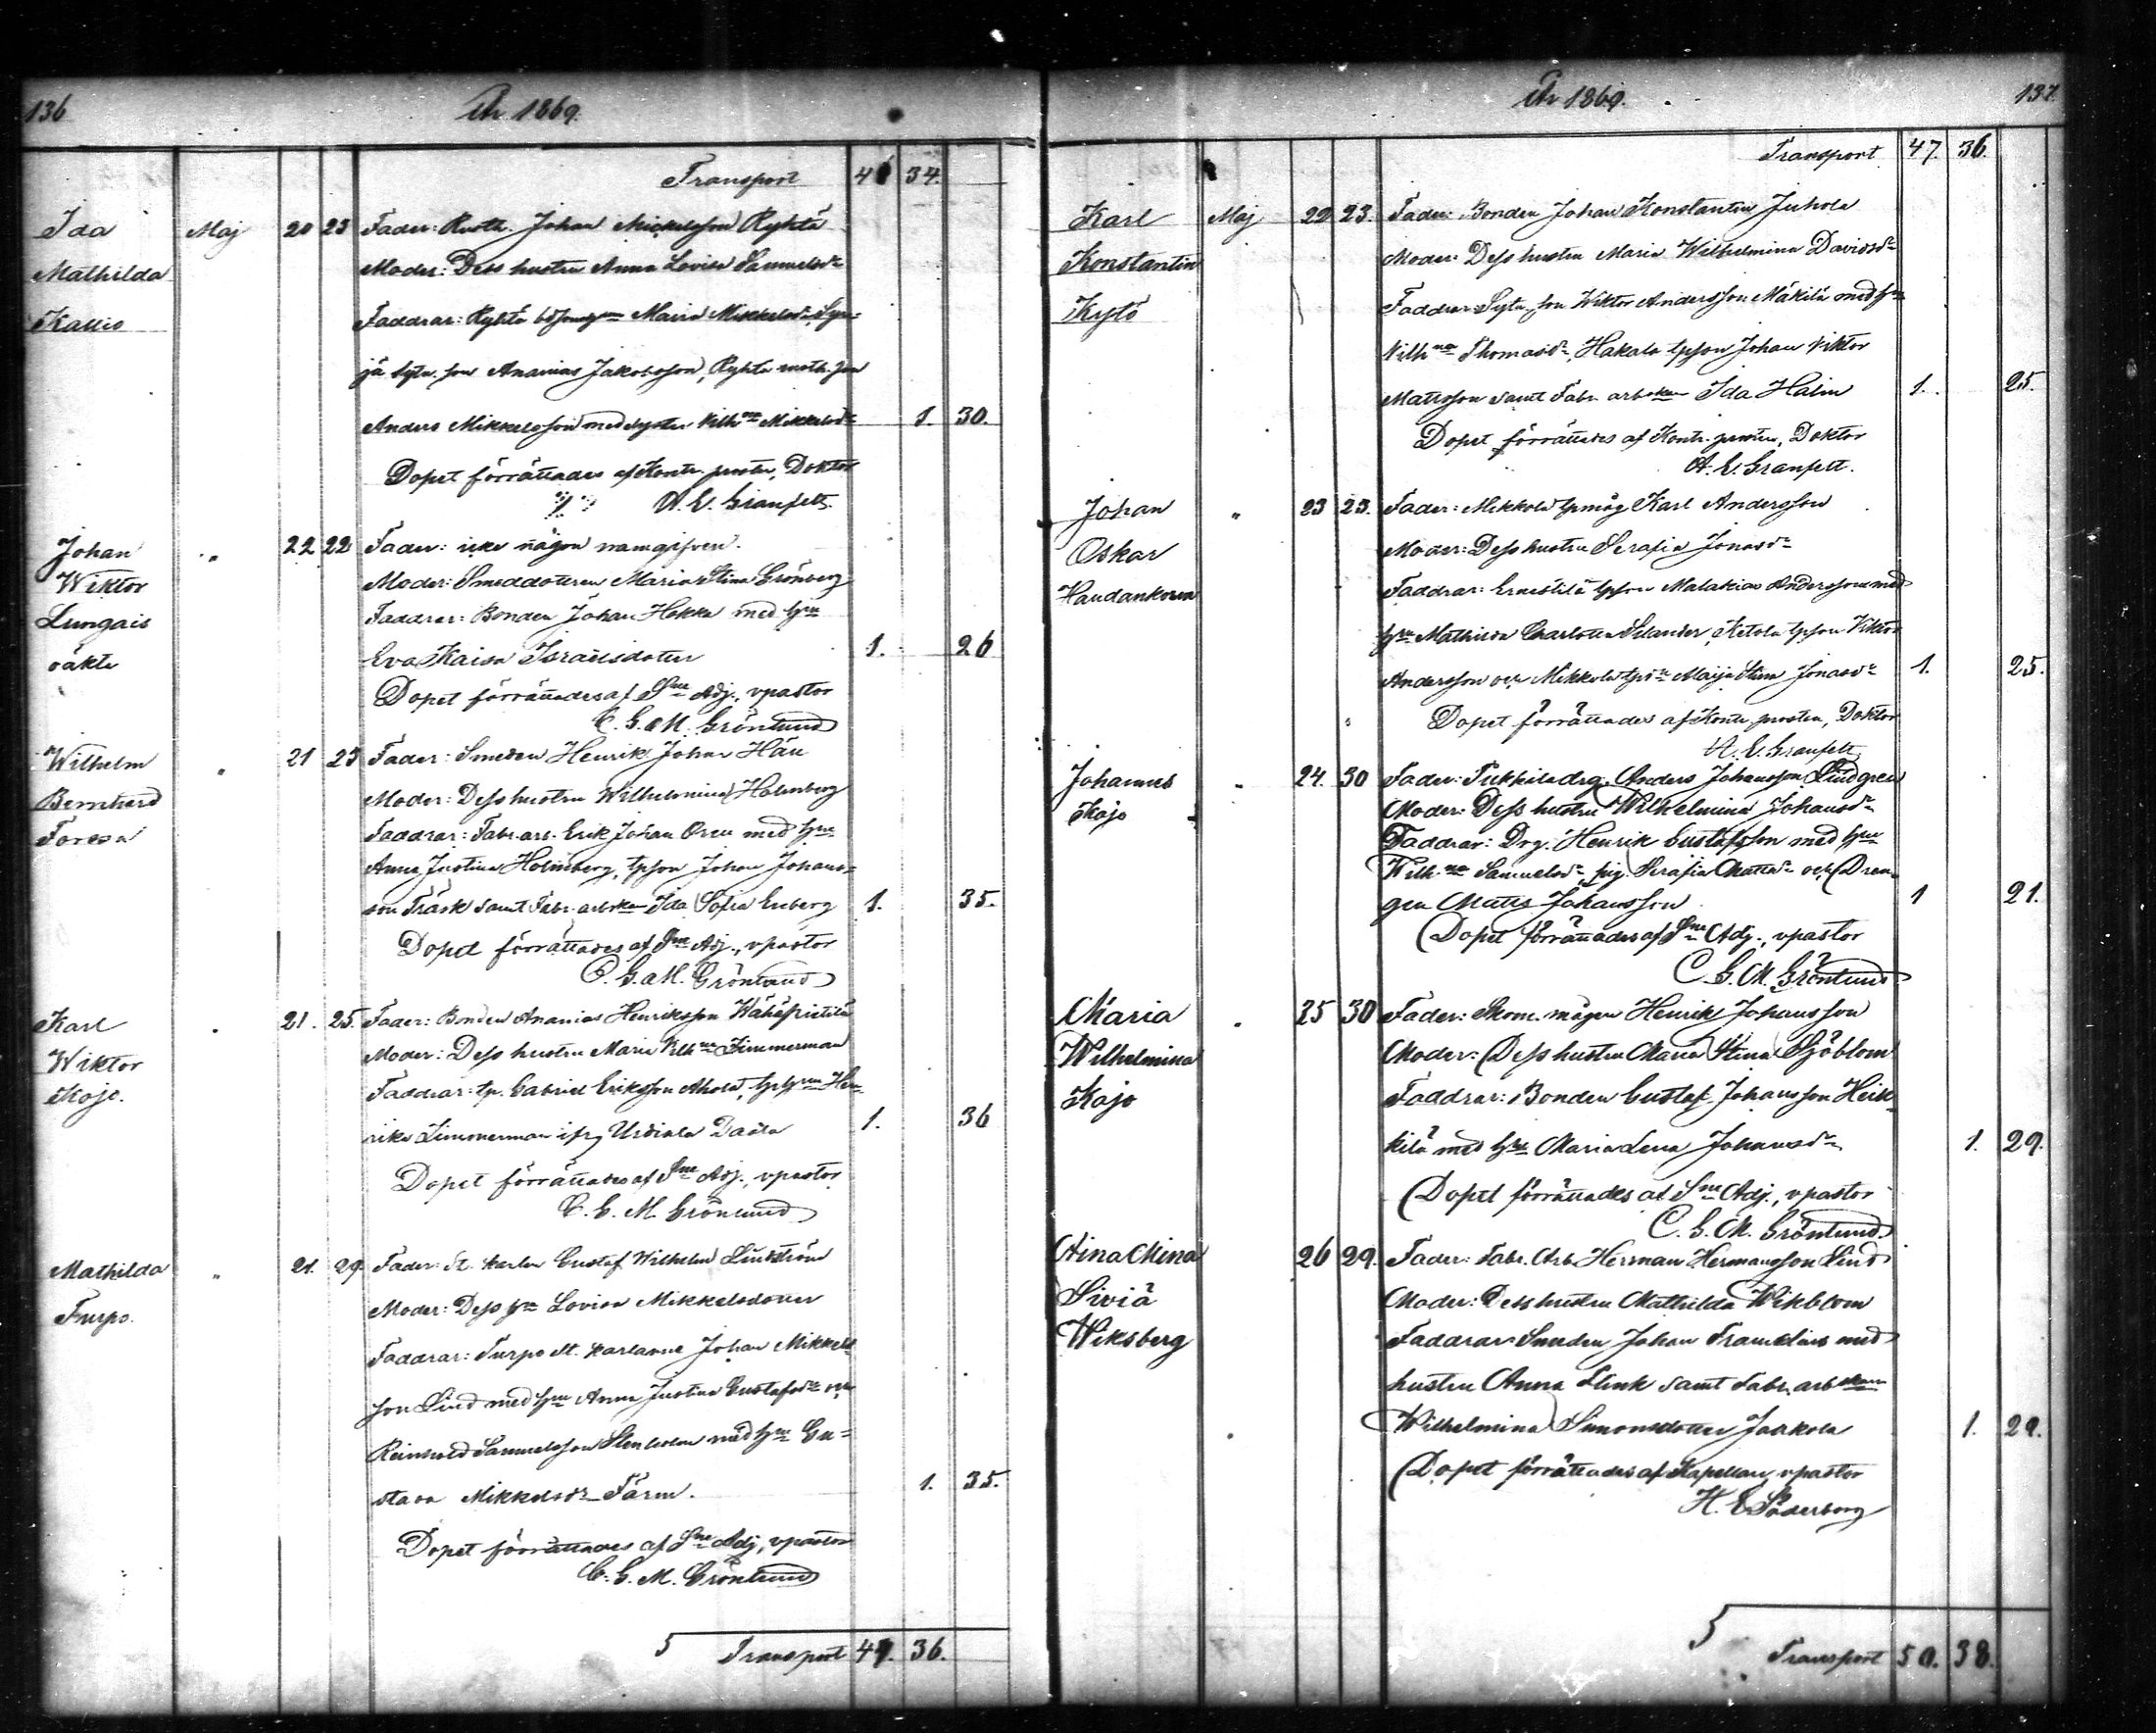 136
År 1869.
Transport 34.
Ida Maj 20 23 Fader: Johan Mickelsson Ryhtä
Mathilda Moder: Dess hustru Anna Lovisa Samuelsdr
Kallio Faddrar: Ryhtä Maria Mikkelsdr,
jä Sytn. son Ananias Jakobsson, Ryhtä
Anders Mikkelsson med syster Vilhna Mikkelsdr 1. 30.
Dopet förrättades af Kontr. prosten, Doktor
A. W. Granfelt.
Johan " 22 22 Fader: icke någon namngifven.
Wiktor Moder: Smeddotteren Maria Stina Grönberg
Lungais Faddrar: Bonden Johan Hokka med hru
oäkta Eva Kaisa Israelsdotter 1. 26
Dopet förrättades af Sne Adj., vpastor
C. G. M. Grönlund
Wilhelm " 21 23 Fader: Smeden Henrik Johan
Bernhard Moder: Dess hustru Wilhelmina Holmberg
Faddrar: Fabr. arb. Erik Johan Oren med hru
Anna Justina Holmberg, tpson Johan Johans-
son Träsk samt Fabr. arbskan Ida Sofia Enberg 1. 35.
Dopet förrättades af Sne Adj., vpastor
C. G. M. Grönlund
Karl " 21. 25. Fader: Bonden Ananias Henriksson
Wiktor Moder: Dess hustru Maria Vilhna Zimmerman
Kojo. Faddrar: tp. Gabriel Eriksson Ahola, Hen-
rika Zimmerman ifrg Urdiala 1. 36
Dopet förrättades af Sne Adj., vpastor
C. G. M. Grönlund
Mathilda " 21. 29 Fader: St. karlen Gustaf Wilhelm Lindström
Turpo. Moder: Dess hru Lovisa Mikkelsdotter
Faddrar: Turpo st. karlarne Johan Mikkels-
son Lind med hru Anna Justina Gustafsdr och
Reinhold Samuelsson Stenholm med hru Gu-
stava Mikkelsdr Färm. 1. 35.
Dopet förrättades af Sne Adj., vpastor
C. G. M. Grönlund
5 Transport 47. 36.
137
År 1869.
Transport 47. 36.
Karl Maj 22 23. Fader: Bonden Johan Konstantin Juhola
Konstantin Moder: Dess hustru Maria Wilhelmina Davidsdr
Kytö Faddrar: Sytn. son Wiktor Andersson Mäkilä med hru
Vilhna Thomasdr, Hakala tpson Johan Viktor
Mattsson samt Fabr. arbskan Ida Halin 1. 25.
Dopet förrättades af Kontr. prosten, Doktor
A. W. Granfelt.
Johan " 23 23. Fader: Mikkola tpmåg Karl Andersson
Oskar Moder: Dess hustru Serafia Jonasdr
Haudankorva Faddrar: Ernestilä tpson Malakias Andersson med
hru Mathilda Charlotta Selander, Ketola tpson Viktor
Andersson och Mikkola tpdr Maija Stina Jonasdr 1. 25.
Dopet förrättades af Kontr. prosten, Doktor
A. W. Granfelt
Johannes " 24. 30 Fader: Pukkila drg. Anders Johansson Lindgren
Kojo Moder: Dess hustru Wilhelmina Johansdr
Faddrar: Drg. Henrik Gustafsson med hru
Wilh.na Samuelsdr, pig. Serafia Mattsdr och Dren-
gen Matts Johansson 1 21.
Dopet förrättades af Sne Adj., vpastor
C. G. M. Grönlund
Maria " 25 30 Fader: Skom. mågen Henrik Johansson
Wilhelmina Moder: Dess hustru Maria Stina Sjöblom
Kojo Faddrar: Bonden Gustaf Johansson Heik-
kilä med hru Maria Lena Johansdr 1. 29.
Dopet förrättades af Sne Adj., vpastor
C. G. M. Grönlund
Aina Mina 26 29. Fader: Fabr. Arb. Herman Hermansson Lind
Siviä Moder: Dess hustru Mathilda Wikblom
Wiksberg Faddrar: Smeden Johan Framelius med
hustru Anna Slink samt Fabr. arbskan
Wilhelmina Simonsdotter Jaakola 1. 29.
Dopet förrättades af Kapellan, vpastor
H. E. Söderborg
5
Transport 50. 38.